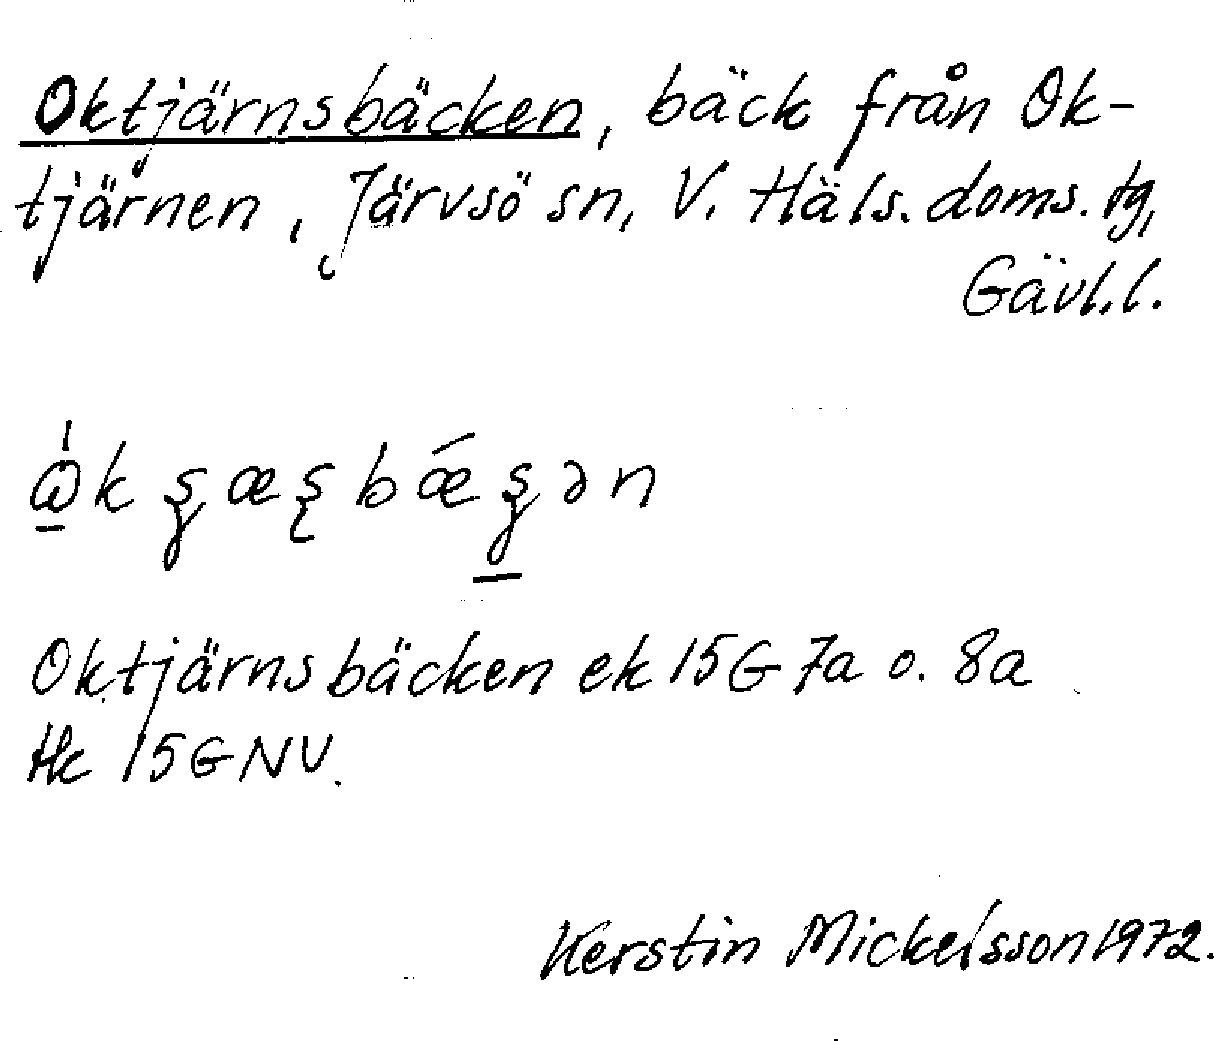 Oktjärnsbäcken, bäck från Ok-
tjärnen, Järvsö sn, V. Häls. doms. tg,
Gävl.l.
Oktjärnsbäcken ek 15G 7a o. 8a
Hk 15G NV.
Kerstin Mickelsson 1972.